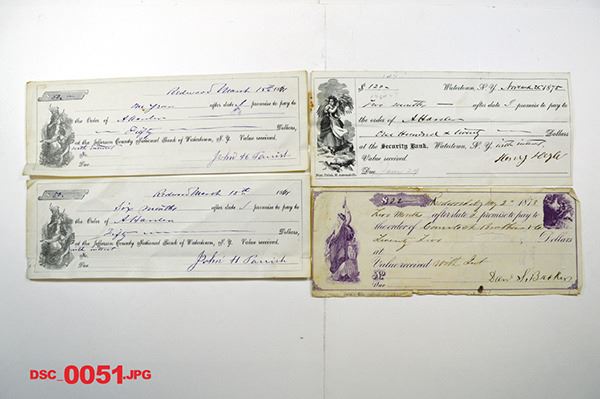 50.00
Redwood March 12th 1891
One year after date I promise to pay to
the Order of A Harden
Fifty Dollars,
at the Jefferson County National Bank of Watertown, N. Y. Value received.
with interest
No.
Due
John H Parish
50.
Redwood March 12th 1891
Six months after date I promise to pay to
the Order of A Harden
Fifty Dollars,
at the Jefferson County National Bank of Watertown, N. Y. Value received.
with interest
No.
Due
John H Parish
$ 120 Watertown, N.Y. 1875
Two months after date I promise to pay to
the order of A Harden
One Hundred & twenty Dollars
at the Security Bank, Watertown, N.Y. with interest
Value received
Due
$22 Redwood 1878
Two Months after date I promise to pay to
the order of Comstock Brothers & Co
Twenty two Dollars
at
Value received with Int
No
Due
DSC_0051.JPG